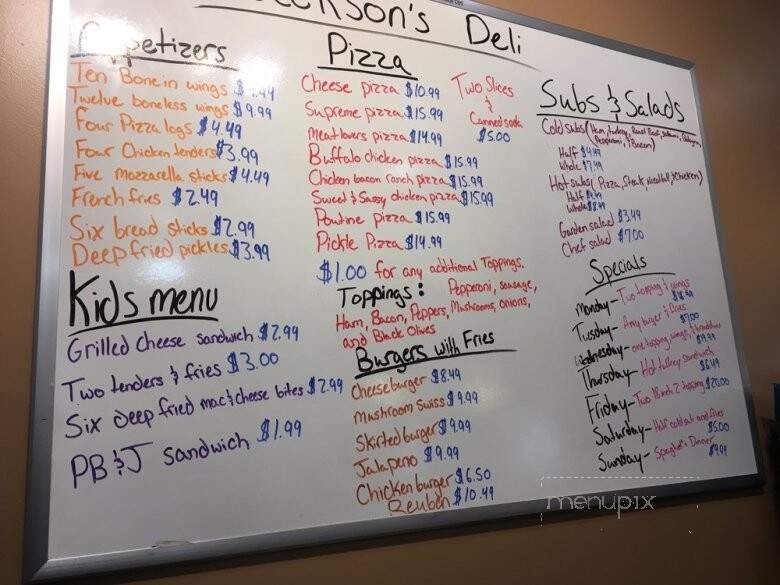 Deli
Appetizers
Ten Bone in wings
Twelve boneless wings $9.99
Four Pizza logs $4.49
Four Chicken tenders $3.99
Five mozzarella sticks $4.49
French fries $2.49
Six bread sticks $2.99
Deep fried pickles $3.99
Kids menu
Grilled Cheese sandwich $2.99
Two tenders & fries $3.00
Six deep fried mac & cheese bites $2.99
PB & J sandwich $1.99
Pizza
Cheese pizza $10.99
Supreme pizza $15.99
Meat lovers pizza $14.99
Buffalo chicken pizza $15.99
Chicken bacon ranch pizza $15.99
Sweet & Sassy chicken pizza $15.99
Poutine pizza $15.99
Pickle Pizza $14.99
$1.00 for any additional Toppings.
Toppings: Pepperoni, sausage,
Ham, Bacon, Peppers, Mushrooms, onions,
and Black Olives
Two Slices
&
Canned soda
$5.00
Burgers with Fries
Cheeseburger $8.49
Mushroom Swiss $9.99
Skirted burger $9.99
Jalapeno $9.99
Chicken burger $6.50
Reuben $10.49
Subs & Salads
Cold subs (Ham, turkey, Roast Beef, salami,
Pepperoni, & Bacon)
Half $4.99
Whole $7.99
Hot subs (Pizza, Steak, meatball & chicken)
Half
Whole $8.99
Garden salad $3.49
Chef salad $7.00
Specials
Monday- Two topping & wings
Tuesday- Any burger & fries
$7.00
Wednesday- one topping, wings, & breadsticks
$19.99
Thursday- Hot turkey sandwich
$6.49
Friday- Two 2 topping $20.00
Saturday- Half cold sub and fries
$5.00
Sunday- Spaghetti Dinner
$9.99
menupix